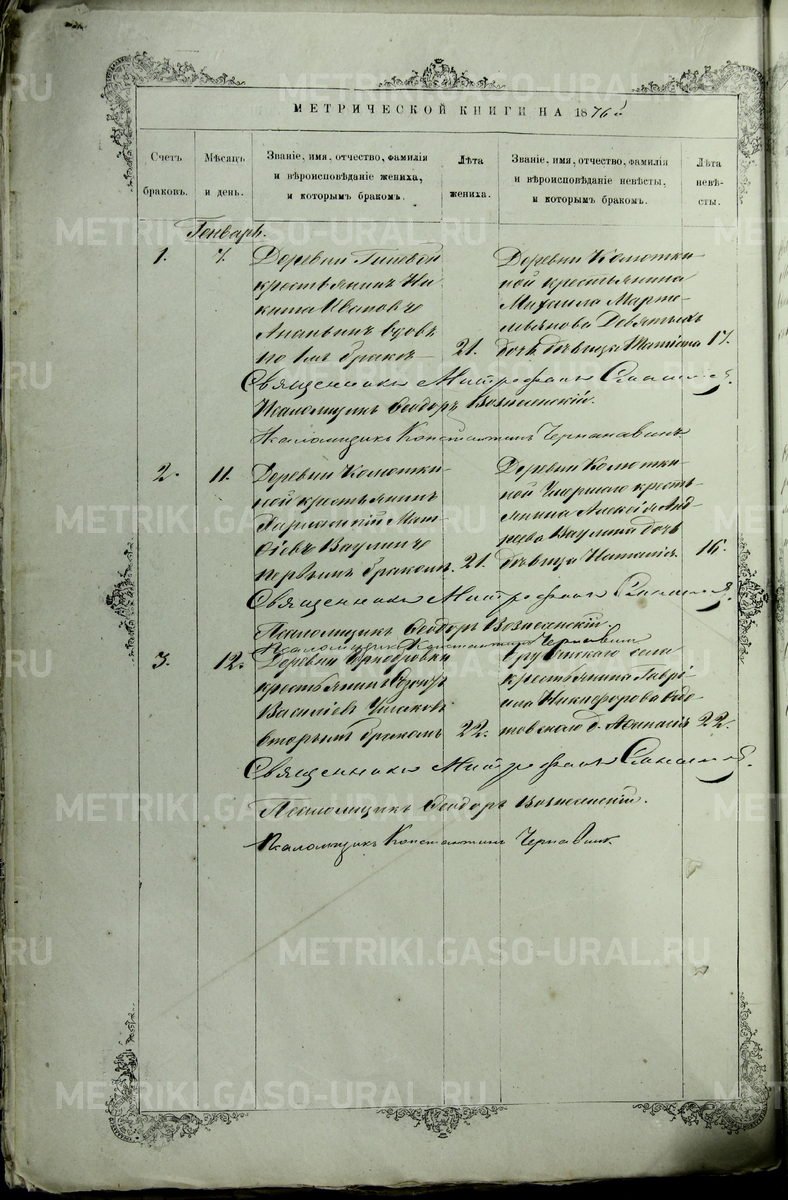 МЕТРИЧЕСКОЙ КНИГИ НА 1876й
Счетъ браковъ.
Мѣсяцъ и день.
Званіе, имя, отчество, фамилія
и вѣроисповѣданіе жениха,
и которымъ бракомъ.
Лѣта жениха.
Званіе, имя, отчество, фамилія
и вѣроисповѣданіе невѣсты,
и которымъ бракомъ.
Лѣта невѣ-
сты.
Генварь.
1.
7.
Деревни
крестьянинъ Ни
кита Ивановъ
Ананьинъ вдовъ
по 1мъ бракѣ
21.
Деревни Колотки-
ной крестьянина
Михаила Марте-
мьянова Девятыхъ
дочь дѣвица
17.
Священникъ Митрофанъ
Псаломщикъ Ѳеодоръ Вознесенскій.
Псаломщикъ Константинъ
2.
11.
Деревни Колотки-
ной крестьянинъ
Мат
ѳіевъ Ваулинъ
первымъ бракомъ.
21.
Деревни Колотки
ной Умершаго кресть
янина Алексія Анд
реева Ваулина дочь
дѣвица Наталія.
16.
Священникъ Митрофанъ
Псаломщикъ Ѳеодоръ Вознесенскій.
Псаломщикъ Константинъ Чернавинъ
3.
12.
Деревни
крестьянинъ
Василіевъ Ушаковъ
вторымъ бракомъ
22.
села
крестьянина Гаврі-
ила Никифорова
д. Аѳанасія
22.
Священникъ Митрофанъ
Псаломщикъ Ѳеодоръ Вознесенскій.
Псаломщикъ Константинъ Чернавинъ
METRIKI.GASO-URAL.RU